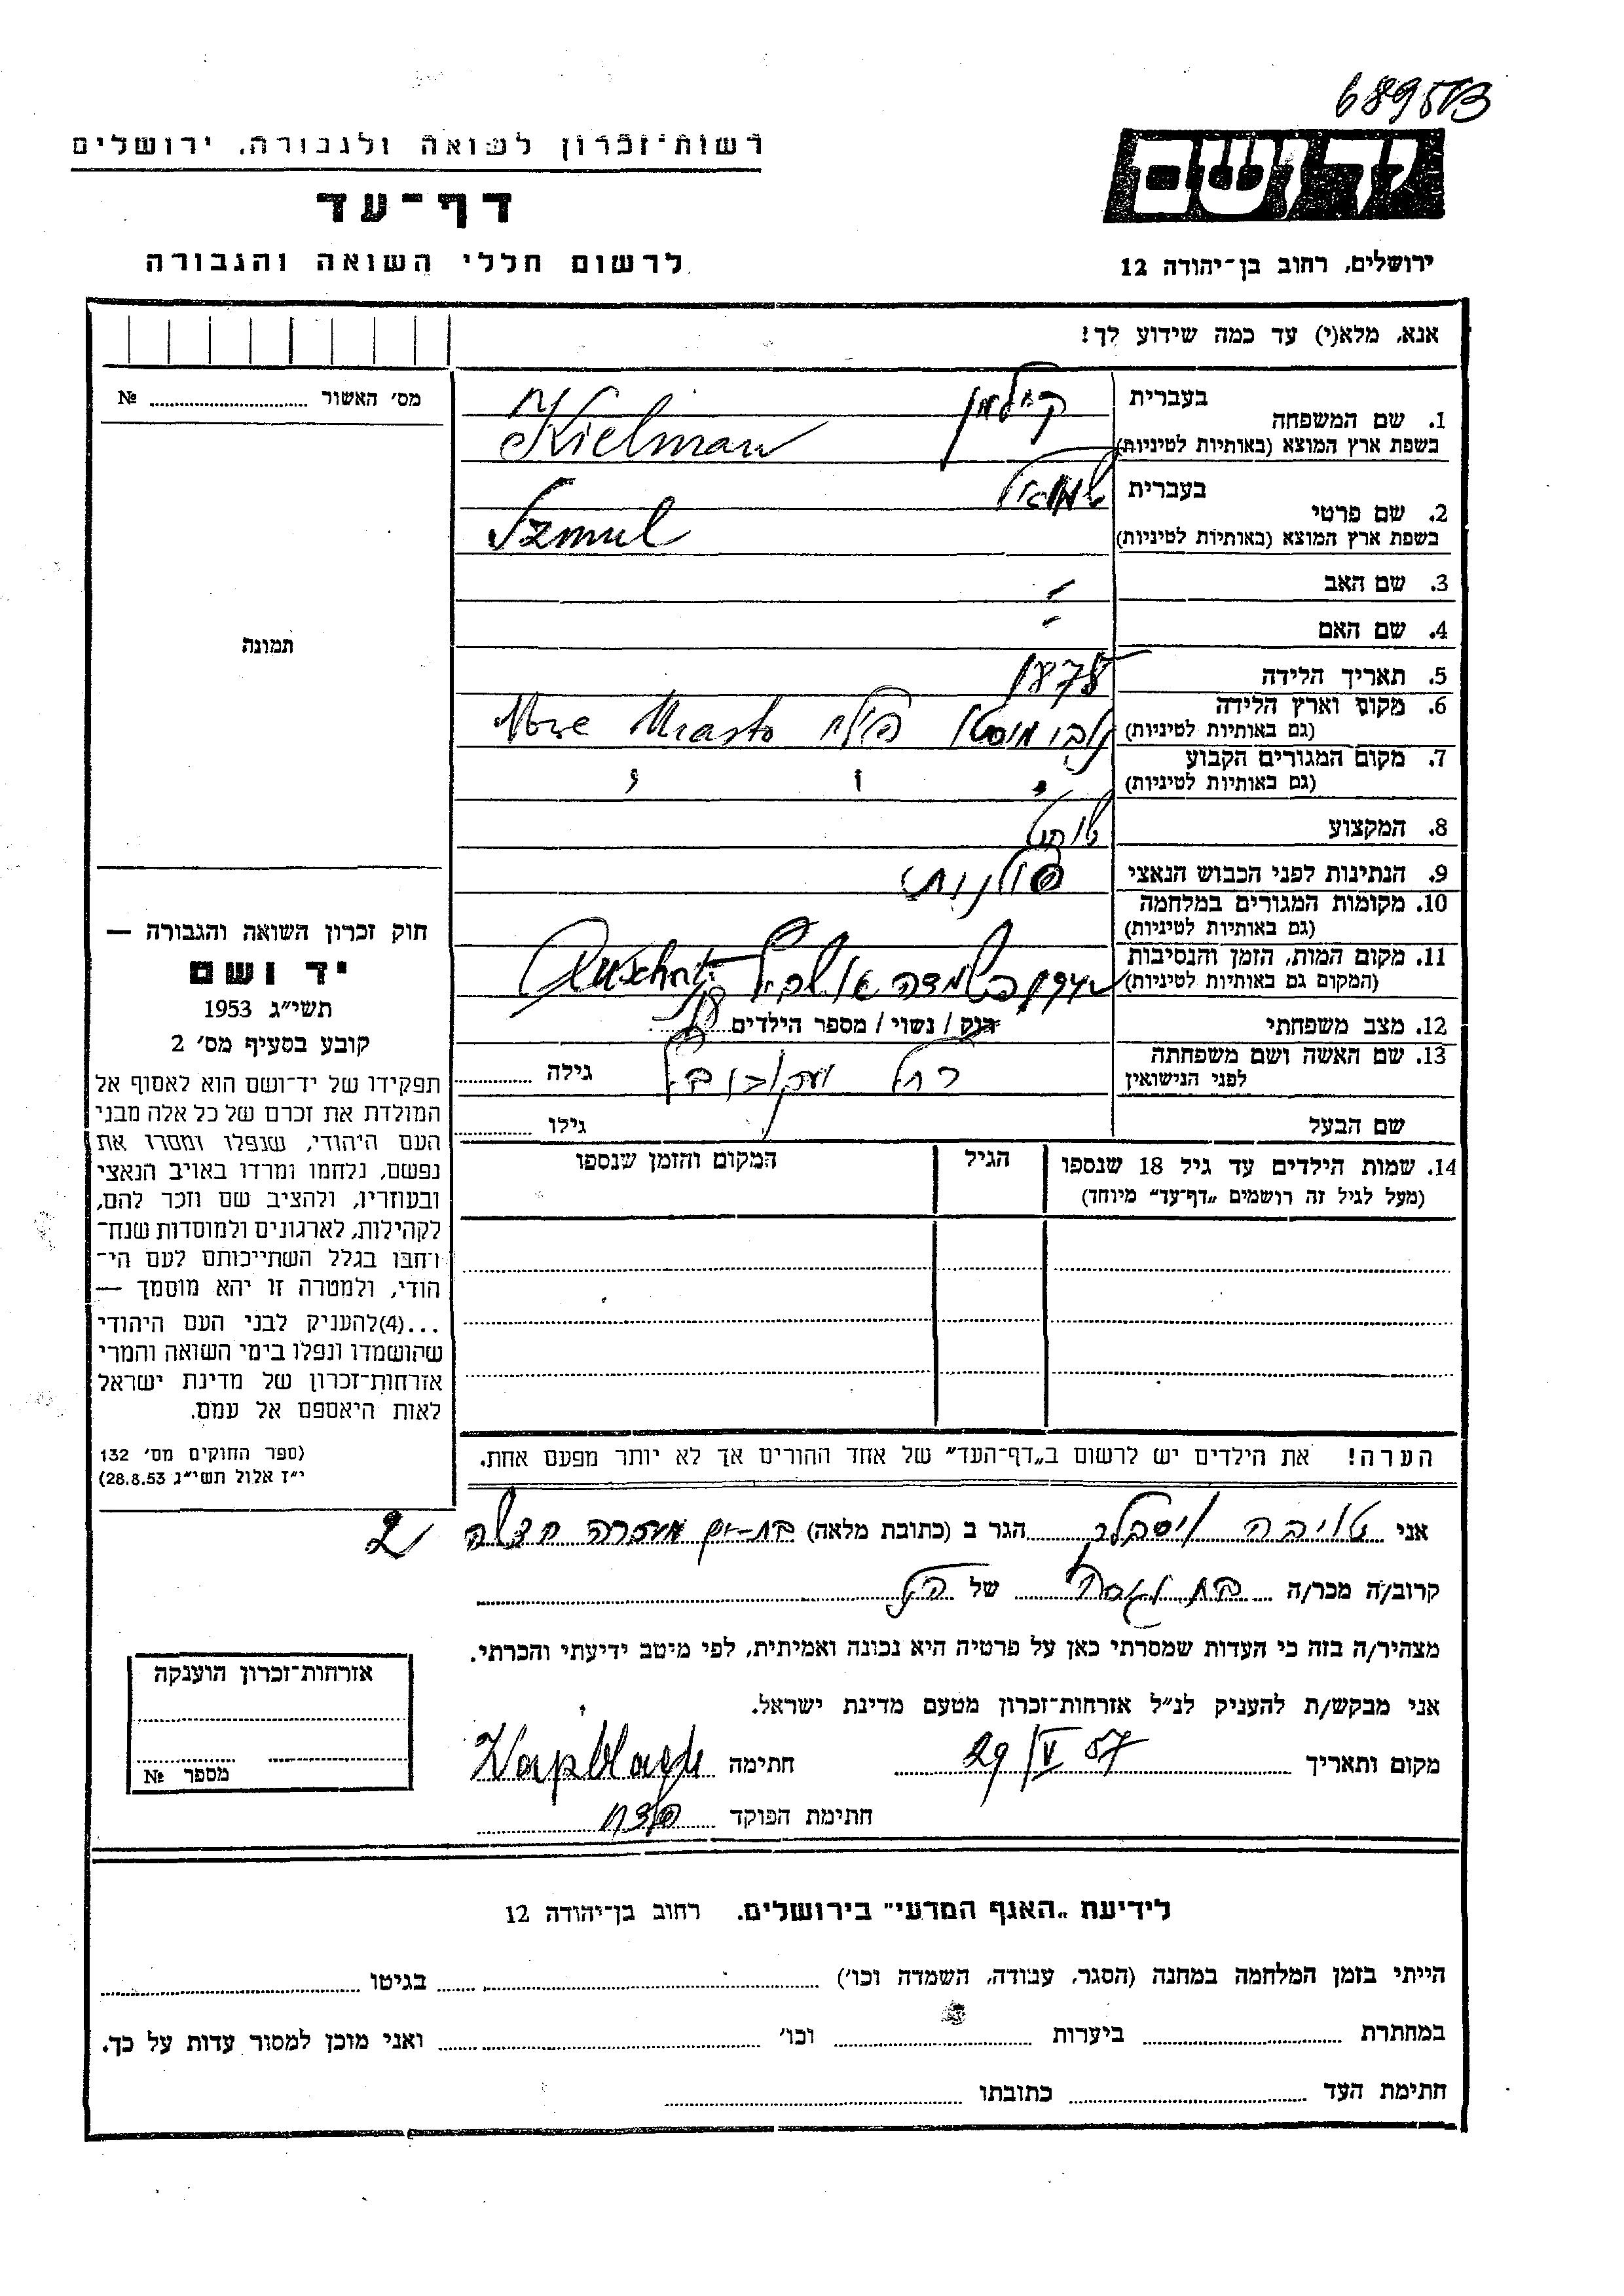 רשות־זכרון לשואה ולגבורה, ירושלים
דף־עד
לרשום חללי השואה והגבורה
יד ושם
ירושלים, רחוב בן־יהודה 12
אנא, מלא(י) עד כמה שידוע לך!
מס׳ האשור ........ №
תמונה
חוק זכרון השואה והגבורה —
יד ושם
תשי״ג 1953
קובע בסעיף מס׳ 2
תפקידו של יד־ושם הוא לאסוף אל
המולדת את זכרם של כל אלה מבני
העם היהודי, שנפלו ומסרו את
נפשם, נלחמו ומרדו באויב הנאצי
ובעוזריו, ולהציב שם וזכר להם,
לקהילות, לארגונים ולמוסדות שנח־
רחבו בגלל השתייכותם לעם הי־
הודי, ולמטרה זו יהא מוסמך —
...(4)להעניק לבני העם היהודי
שהושמדו ונפלו בימי השואה והמרי
אזרחות־זכרון של מדינת ישראל
לאות היאספם אל עמם.
(ספר החוקים מס׳ 132
י״ז אלול תשי״ג 28.8.53)
1. שם המשפחה בעברית קילמן
בשפת ארץ המוצא (באותיות לטיניות) Kielman
2. שם פרטי בעברית שמואל
בשפת ארץ המוצא (באותיות לטיניות) Szmul
3. שם האב -
4. שם האם -
5. תאריך הלידה 1878
6. מקום וארץ הלידה
(גם באותיות לטיניות) נובי מיסטו פולין Nove Miasto
7. מקום המגורים הקבוע
(גם באותיות לטיניות) " " "
8. המקצוע שוחט
9. הנתינות לפני הכבוש הנאצי פולנית
10. מקומות המגורים במלחמה
(גם באותיות לטיניות)
11. מקום המות, הזמן והנסיבות
(המקום גם באותיות לטיניות) בהשמדה אושביץ
12. מצב משפחתי רוק / נשוי / מספר הילדים
13. שם האשה ושם משפחתה
לפני הנישואין רחל יעקובוביץ גילה
שם הבעל גילו
14. שמות הילדים עד גיל 18 שנספו הגיל המקום והזמן שנספו
(מעל לגיל זה רושמים „דף־עד״ מיוחד)
הערה! את הילדים יש לרשום ב„דף־העד״ של אחד ההורים אך לא יותר מפעם אחת.
אני טויבה הגר ב (כתובת מלאה) בת-ים 2
קרוב/ה מכר/ה בת של
מצהיר/ה בזה כי העדות שמסרתי כאן על פרטיה היא נכונה ואמיתית, לפי מיטב ידיעתי והכרתי.
אני מבקש/ת להעניק לנ״ל אזרחות־זכרון מטעם מדינת ישראל.
מקום ותאריך 29/V 57 חתימה
חתימת הפוקד
אזרחות־זכרון הוענקה
מספר №
לידיעת „האגף המדעי״ בירושלים. רחוב בן־יהודה 12
הייתי בזמן המלחמה במחנה (הסגר, עבודה, השמדה וכו׳) בגיטו
במחתרת ביערות וכו׳ ואני מוכן למסור עדות על כך.
חתימת העד כתובתו